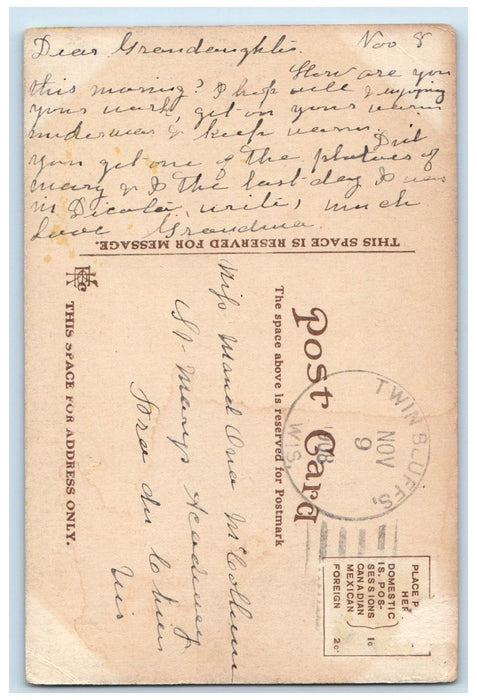 Dear Grandaughter. Nov 8
How are you
this morning? I hop well & enjoying
your work, get on your warm
underwear & keep warm. Did
you get one of the photoes of
mary & I the last day I was
in write, much
love Grandma.
THIS SPACE IS RESERVED FOR MESSAGE.
Post Card
The space above is reserved for Postmark
THIS SPACE FOR ADDRESS ONLY.
Miss Maud Ona McCollum
St-Marys Academy
Prairie du Chien
Wis
TWIN BLUFFS,
NOV
9
WIS.
PLACE P
HER
DOMESTIC
IS. POS-
SESSIONS
CANADIAN
MEXICAN
1c
FOREIGN 2c